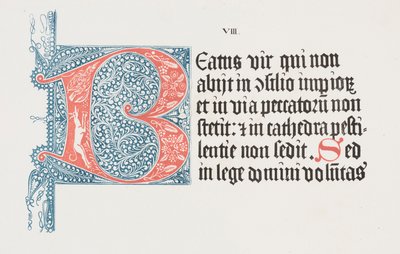 VIII.
Beatus vir qui non
abijt in ↄsilio impioꝝ
et in via peccatorū non
stetit: ⁊ in cathedra pesti-
lentie non sedit. Sed
in lege domini volūtas